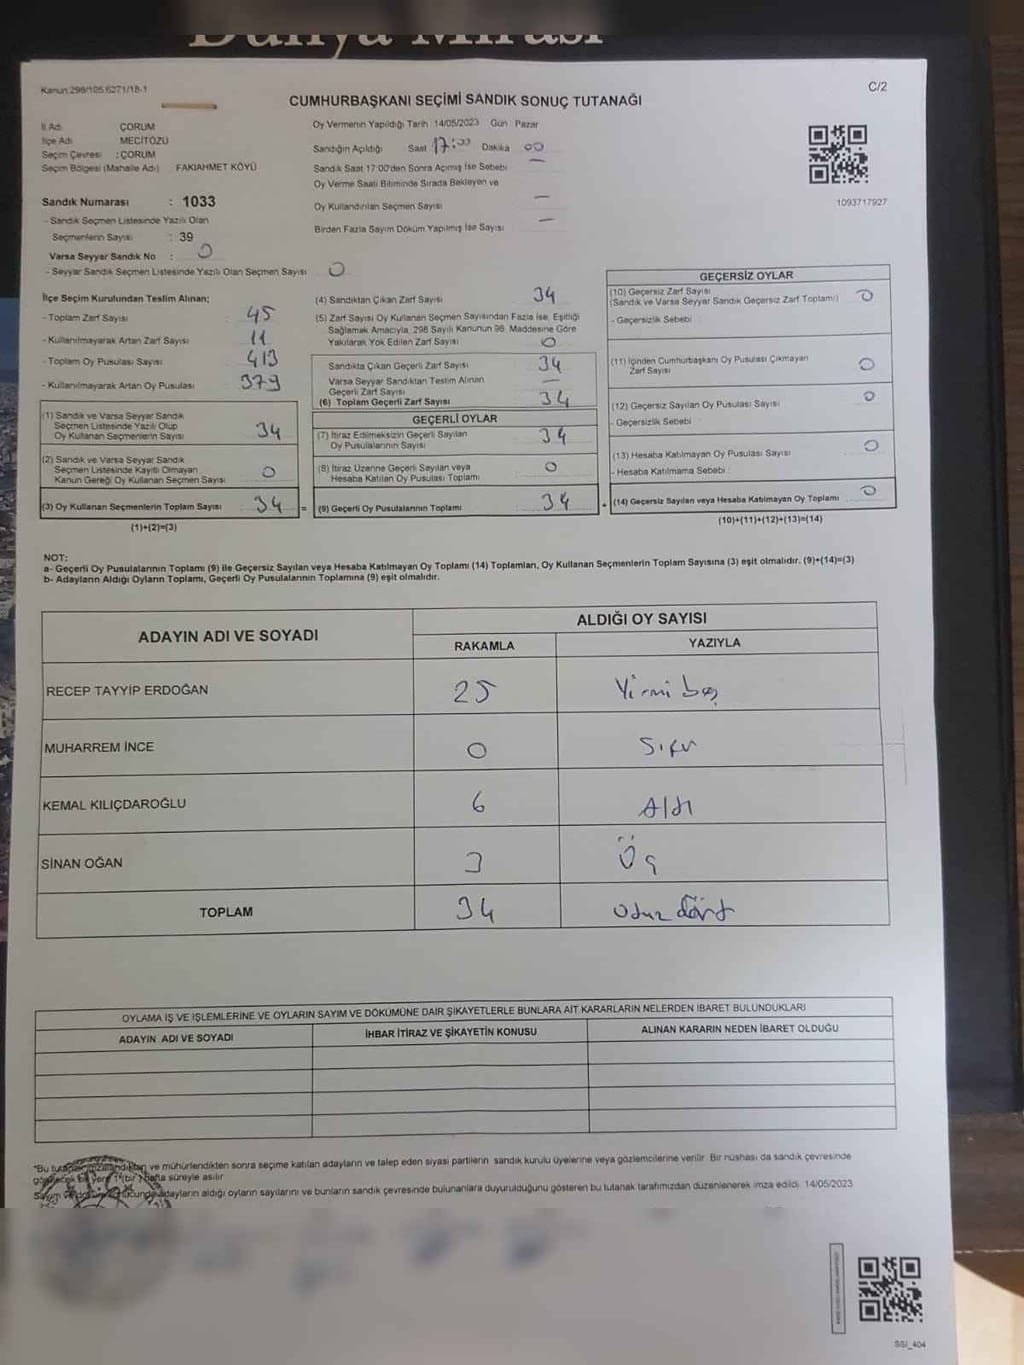 Dünya Mirası
Kanun:298/105,6271/18-1
C/2
CUMHURBAŞKANI SEÇİMİ SANDIK SONUÇ TUTANAĞI
İl Adı : ÇORUM
İlçe Adı : MECİTÖZÜ
Seçim Çevresi : ÇORUM
Seçim Bölgesi (Mahalle Adı) FAKIAHMET KÖYÜ
Sandık Numarası : 1033
- Sandık Seçmen Listesinde Yazılı Olan
Seçmenlerin Sayısı : 39
Varsa Seyyar Sandık No : 0
- Seyyar Sandık Seçmen Listesinde Yazılı Olan Seçmen Sayısı 0
Oy Vermenin Yapıldığı Tarih 14/05/2023 Gün Pazar
Sandığın Açıldığı Saat 17:00 Dakika 00
Sandık Saat 17:00'den Sonra Açımış İse Sebebi —
Oy Verme Saati Bitiminde Sırada Bekleyen ve
Oy Kullandırılan Seçmen Sayısı —
Birden Fazla Sayım Döküm Yapılmış İse Sayısı —
1093717927
İlçe Seçim Kurulundan Teslim Alınan;
- Toplam Zarf Sayısı : 45
- Kullanılmayarak Artan Zarf Sayısı : 11
- Toplam Oy Pusulası Sayısı : 413
- Kullanılmayarak Artan Oy Pusulası : 379
(1) Sandık ve Varsa Seyyar Sandık
Seçmen Listesinde Yazılı Olup
Oy Kullanan Seçmenlerin Sayısı 34
(2) Sandık ve Varsa Seyyar Sandık
Seçmen Listesinde Kayıtlı Olmayan
Kanun Gereği Oy Kullanan Seçmen Sayısı 0
(3) Oy Kullanan Seçmenlerin Toplam Sayısı : 34 =
(1)+(2)=(3)
(4) Sandıktan Çıkan Zarf Sayısı 34
(5) Zarf Sayısı Oy Kullanan Seçmen Sayısından Fazla İse, Eşitliği
Sağlamak Amacıyla, 298 Sayılı Kanunun 98. Maddesine Göre
Yakılarak Yok Edilen Zarf Sayısı 0
Sandıkta Çıkan Geçerli Zarf Sayısı 34
Varsa Seyyar Sandıktan Teslim Alınan
Geçerli Zarf Sayısı —
(6) Toplam Geçerli Zarf Sayısı 34
GEÇERLİ OYLAR
(7) İtiraz Edilmeksizin Geçerli Sayılan
Oy Pusulalarının Sayısı 34
(8) İtiraz Üzerine Geçerli Sayılan veya
Hesaba Katılan Oy Pusulası Toplamı 0
(9) Geçerli Oy Pusulalarının Toplamı : 34 +
GEÇERSİZ OYLAR
(10) Geçersiz Zarf Sayısı
(Sandık ve Varsa Seyyar Sandık Geçersiz Zarf Toplamı) 0
- Geçersizlik Sebebi :
(11) İçinden Cumhurbaşkanı Oy Pusulası Çıkmayan
Zarf Sayısı 0
(12) Geçersiz Sayılan Oy Pusulası Sayısı 0
- Geçersizlik Sebebi :
(13) Hesaba Katılmayan Oy Pusulası Sayısı 0
- Hesaba Katılmama Sebebi :
(14) Geçersiz Sayılan veya Hesaba Katılmayan Oy Toplamı 0
(10)+(11)+(12)+(13)=(14)
NOT:
a- Geçerli Oy Pusulalarının Toplamı (9) ile Geçersiz Sayılan veya Hesaba Katılmayan Oy Toplamı (14) Toplamları, Oy Kullanan Seçmenlerin Toplam Sayısına (3) eşit olmalıdır. (9)+(14)=(3)
b- Adayların Aldığı Oyların Toplamı, Geçerli Oy Pusulalarının Toplamına (9) eşit olmalıdır.
ADAYIN ADI VE SOYADI ALDIĞI OY SAYISI
RAKAMLA YAZIYLA
RECEP TAYYİP ERDOĞAN 25 Yirmi beş
MUHARREM İNCE 0 Sıfır
KEMAL KILIÇDAROĞLU 6 Altı
SİNAN OĞAN 3 Üç
TOPLAM 34 Otuz dört
OYLAMA İŞ VE İŞLEMLERİNE VE OYLARIN SAYIM VE DÖKÜMÜNE DAİR ŞİKAYETLERLE BUNLARA AİT KARARLARIN NELERDEN İBARET BULUNDUKLARI
ADAYIN ADI VE SOYADI İHBAR İTİRAZ VE ŞİKAYETİN KONUSU ALINAN KARARIN NEDEN İBARET OLDUĞU
"Bu ve mühürlendikten sonra seçime katılan adayların ve talep eden siyasi partilerin sandık kurulu üyelerine veya gözlemcilerine verilir. Bir nüshası da sandık çevresinde
1 (bir) hafta süreyle asılır
Sayım adayların aldığı oyların sayılarını ve bunların sandık çevresinde bulunanlara duyurulduğunu gösteren bu tutanak tarafımızdan düzenlenerek imza edildi. 14/05/2023
SSI_404